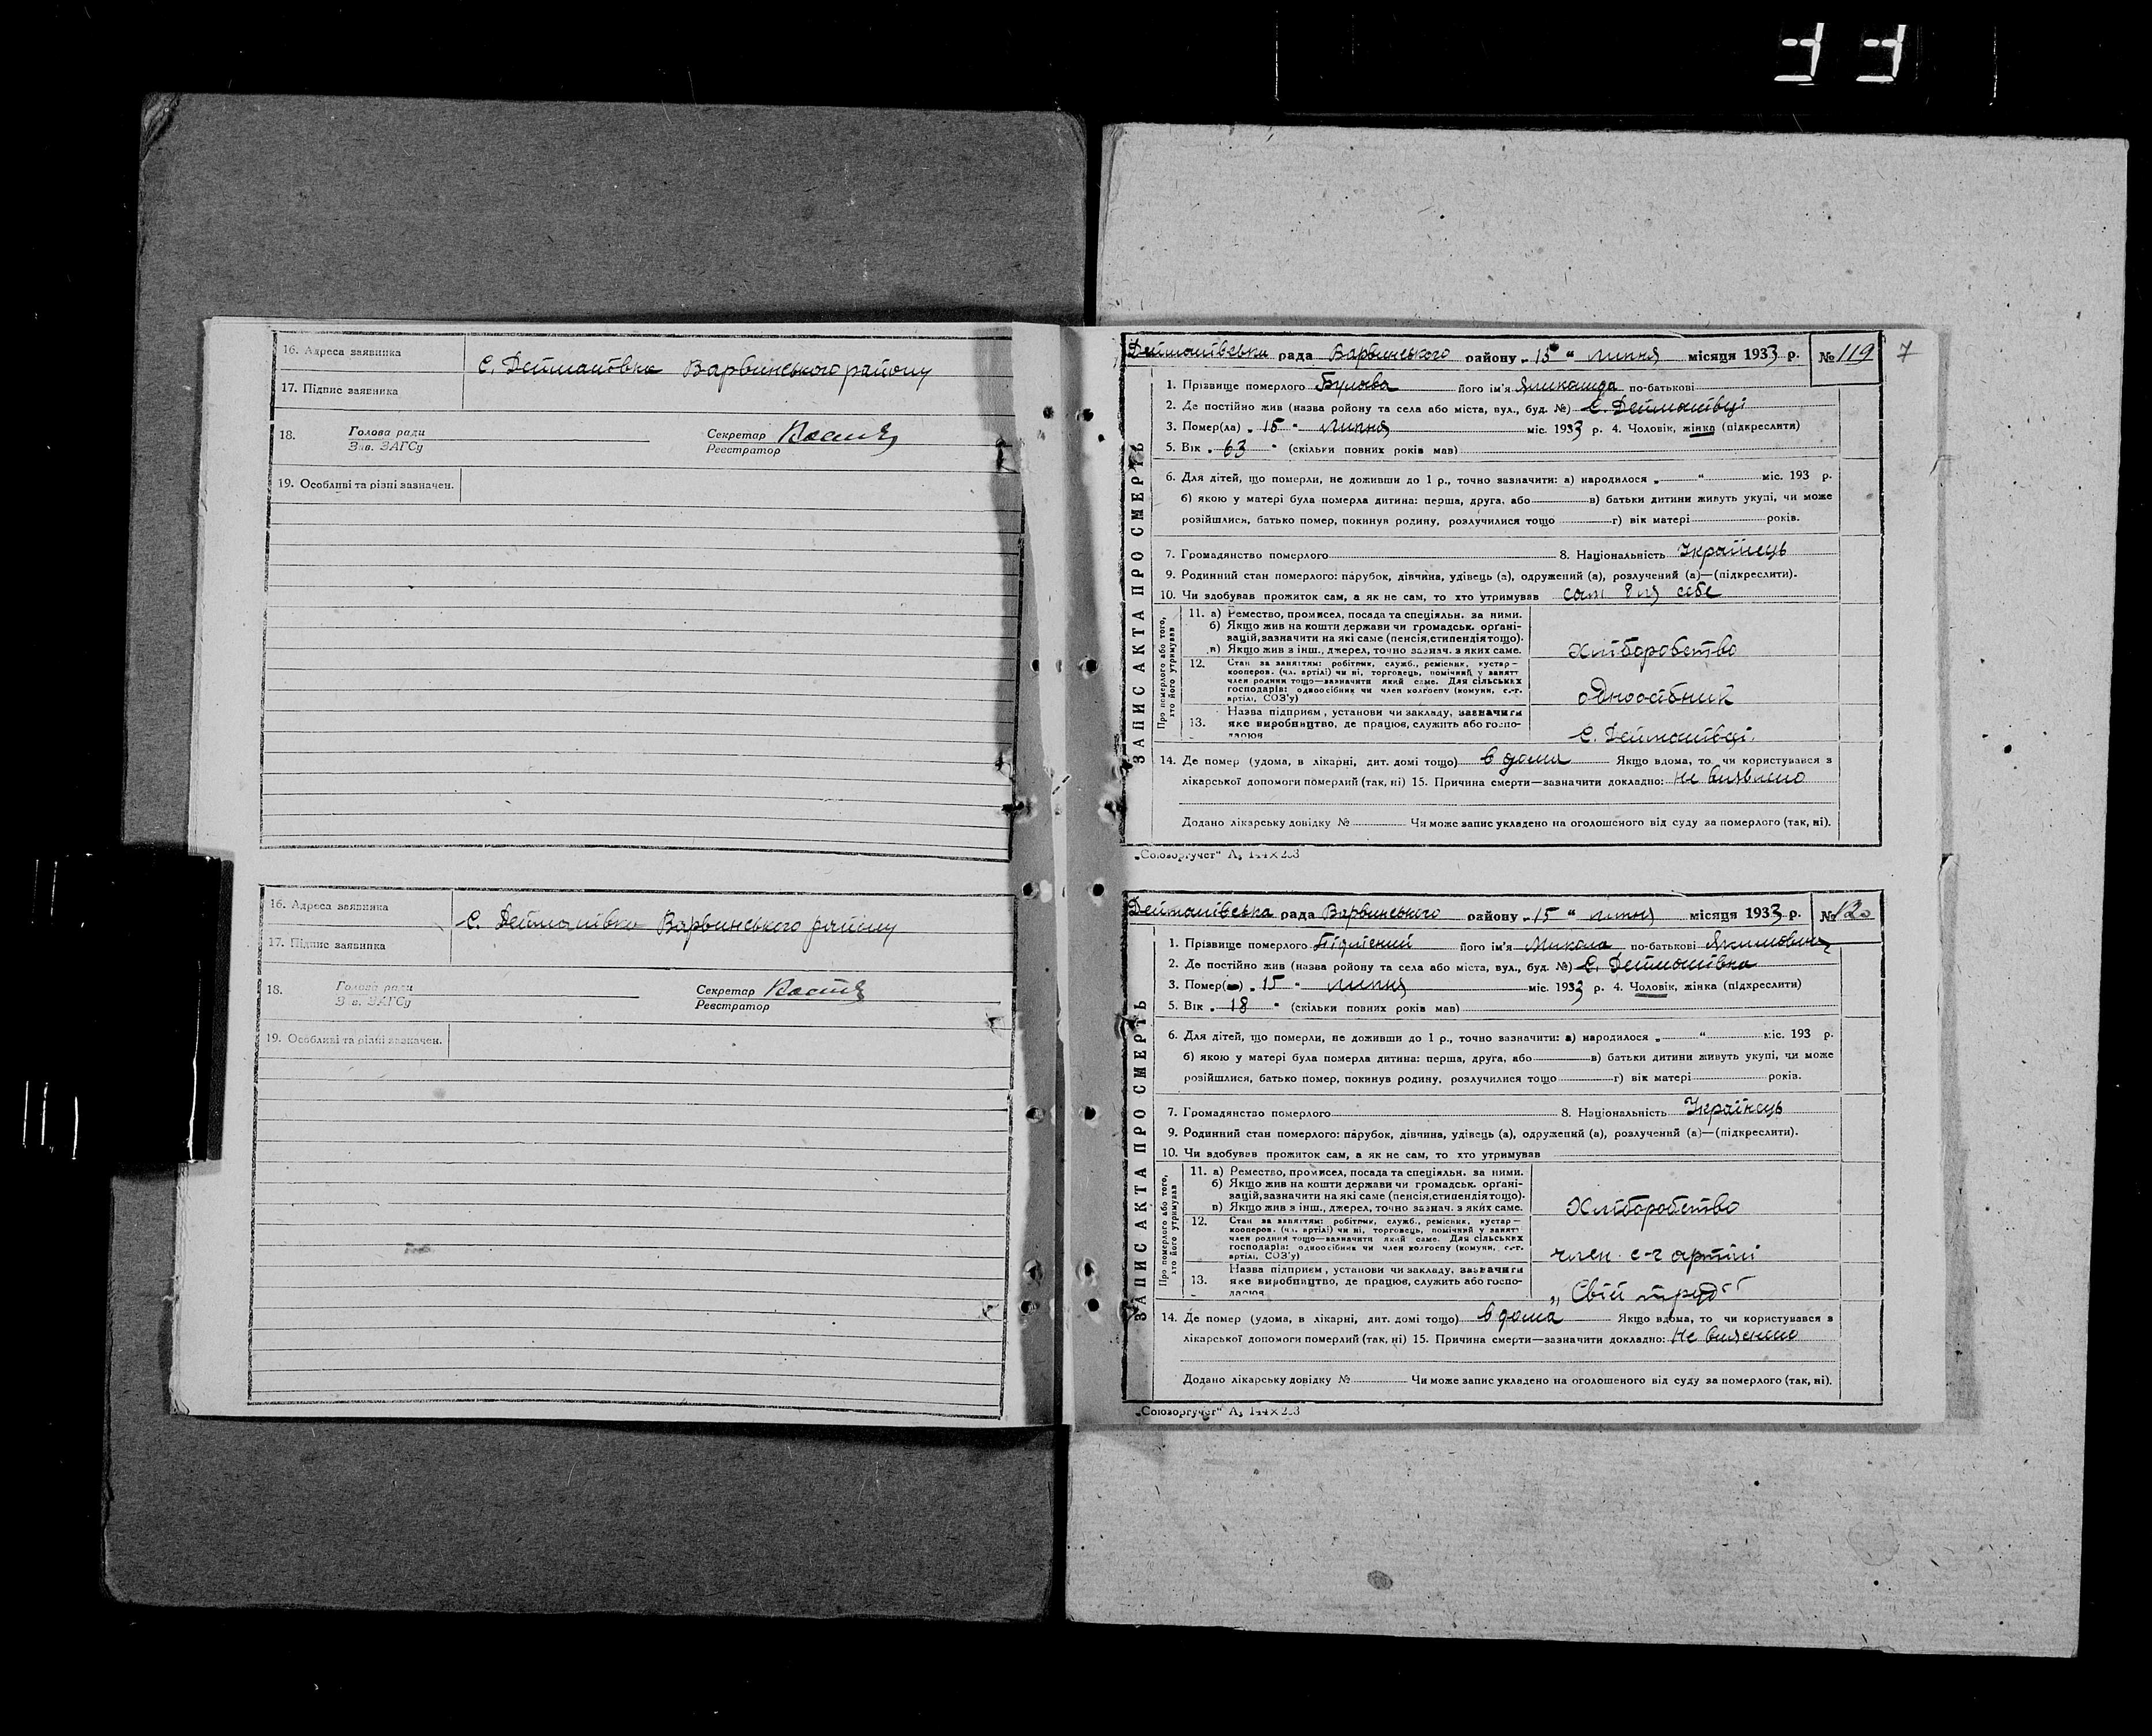 16. Адреса заявника
с. Дейманівка Варвинського району
17. Підпис заявника
18. Голова ради
Зав. ЗАГСу
Секретар
Реєстратор
19. Особливі та різні зазначен.
16. Адреса заявника
с. Дейманівка Варвинського району
17. Підпис заявника
18. Голова ради
Зав. ЗАГСу
Секретар
Реєстратор
19. Особливі та різні зазначен.
Дейманівська рада Варвинського району „15“ липня місяця 1933 р. № 119
7
ЗАПИС АКТА ПРО СМЕРТЬ
1. Прізвище померлого його ім'я по-батькові
2. Де постійно жив (назва району та села або міста, вул., буд. №) с. Дейманівці
3. Помер(ла) „15“ липня міс. 1933 р. 4. Чоловік, жінка (підкреслити)
5. Вік „63“ (скільки повних років мав)
6. Для дітей, що померли, не доживши до 1 р., точно зазначити: а) народилося „ “ міс. 193 р.
б) якою у матері була померла дитина: перша, друга, або в) батьки дитини живуть укупі, чи може
розійшлися, батько помер, покинув родину, розлучилися тощо г) вік матері років.
7. Громадянство померлого 8. Національність Українець
9. Родинний стан померлого: парубок, дівчина, удівець (а), одружений (а), розлучений (а)—(підкреслити).
10. Чи здобував прожиток сам, а як не сам, то хто утримував сам для себе
Про померлого або того, хто його утримував
11. а) Ремество, промисел, посада та спеціяльн. за ними.
б) Якщо жив на кошти держави чи громадськ. орґані-
зацій, зазначити на які саме (пенсія, стипендія тощо).
в) Якщо жив з інш., джерел, точно зазнач. з яких саме.
Хліборобство
12. Стан за заняттям: робітник, служб., ремісник, кустар—
кооперов. (чл. артілі) чи ні, торговець, помічний у занятт
член родини тощо—зазначити який саме. Для сільських
господарів: одноосібник чи член колгоспу (комуни, с.-г.
артілі, СОЗ'у)
одноосібник
13. Назва підприєм, установи чи закладу, зазначити
яке виробництво, де працює, служить або госпо-
дарює
с. Дейманівці.
14. Де помер (удома, в лікарні, дит. домі тощо) в дома Якщо вдома, то чи користувався з
лікарської допомоги померлий (так, ні) 15. Причина смерти—зазначити докладно: не виявлено
Додано лікарську довідку № Чи може запис укладено на оголошеного від суду за померлого (так, ні).
„Союзоргучет“
Дейманівська рада Варвинського району „15“ липня місяця 1933 р. № 120
ЗАПИС АКТА ПРО СМЕРТЬ
1. Прізвище померлого його ім'я Микола по-батькові Якимович
2. Де постійно жив (назва району та села або міста, вул., буд. №) с. Дейманівка
3. Помер „15“ липня міс. 1933 р. 4. Чоловік, жінка (підкреслити)
5. Вік „18“ (скільки повних років мав)
6. Для дітей, що померли, не доживши до 1 р., точно зазначити: а) народилося „ “ міс. 193 р.
б) якою у матері була померла дитина: перша, друга, або в) батьки дитини живуть укупі, чи може
розійшлися, батько помер, покинув родину, розлучилися тощо г) вік матері років.
7. Громадянство померлого 8. Національність Українець
9. Родинний стан померлого: парубок, дівчина, удівець (а), одружений (а), розлучений (а)—(підкреслити).
10. Чи здобував прожиток сам, а як не сам, то хто утримував
Про померлого або того, хто його утримував
11. а) Ремество, промисел, посада та спеціяльн. за ними.
б) Якщо жив на кошти держави чи громадськ. орґані-
зацій, зазначити на які саме (пенсія, стипендія тощо).
в) Якщо жив з інш., джерел, точно зазнач. з яких саме.
Хліборобство
12. Стан за заняттям: робітник, служб., ремісник, кустар—
кооперов. (чл. артілі) чи ні, торговець, помічний у занятт
член родини тощо—зазначити який саме. Для сільських
господарів: одноосібник чи член колгоспу (комуни, с.-г.
артілі, СОЗ'у)
член с-г артілі
13. Назва підприєм, установи чи закладу, зазначити
яке виробництво, де працює, служить або госпо-
дарює
„Свій труд“
14. Де помер (удома, в лікарні, дит. домі тощо) в дома Якщо вдома, то чи користувався з
лікарської допомоги померлий (так, ні) 15. Причина смерти—зазначити докладно: Не
Додано лікарську довідку № Чи може запис укладено на оголошеного від суду за померлого (так, ні).
„Союзоргучет“